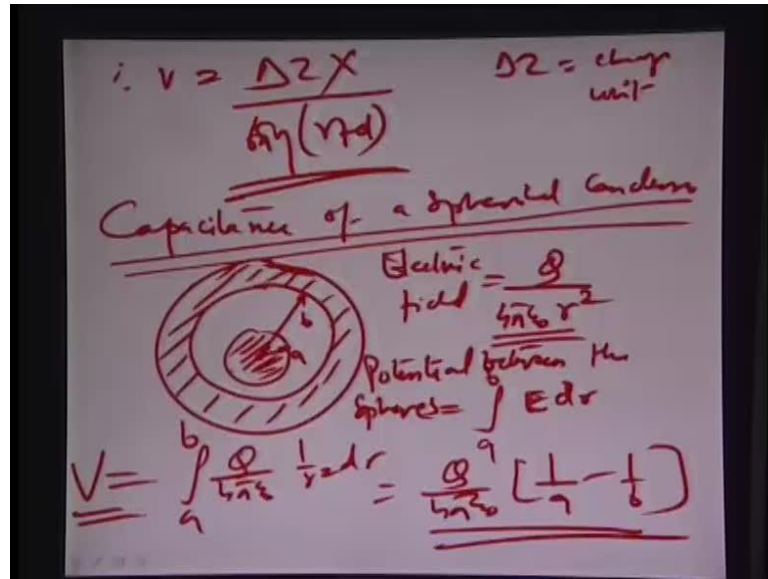 ∴ V = ΔZX / 6πη(r+d)
ΔZ = charge unit
Capacitance of a Spherical Condenser
Electric field = Q / 4πε₀ r²
b
a
Potential between the Spheres = ∫ₐᵇ E dr
V = ∫ₐᵇ Q/4πε₀ 1/r² dr = Q/4πε₀ [1/a − 1/b]